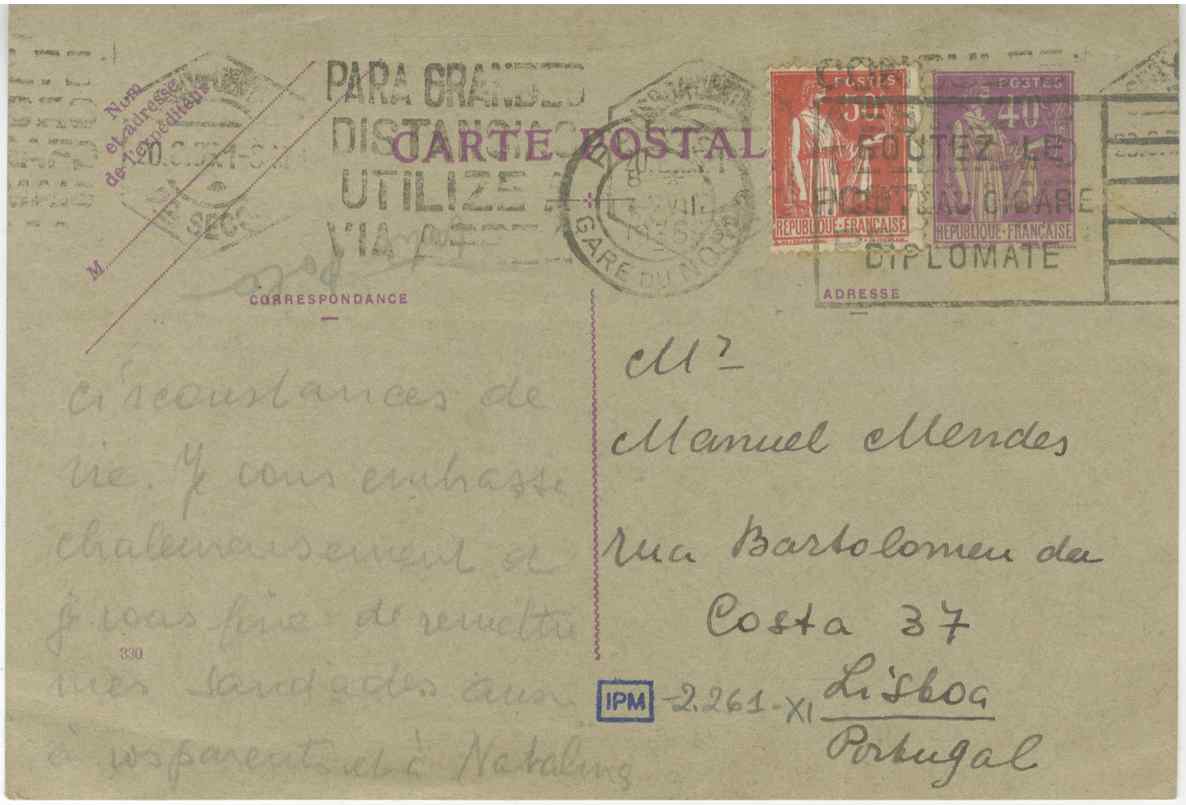 Nom
et adresse
de l'expéditeur
M
PARA GRANDES
DISTANCIAS
UTILIZE A
VIA
CARTE POSTALE
GARE DU NORD
POSTES
50
RÉPUBLIQUE-FRANÇAISE
POSTES
40
RÉPUBLIQUE-FRANÇAISE
GOUTEZ LE
CIGARE
DIPLOMATE
CORRESPONDANCE
circonstances de
vie. Je vous embrasse
chaleureusement et
je vous prie de remettre
mes saudades aussi
à vos parents et à Natalina
330
ADRESSE
Mr
Manuel Mendes
rua Bartolomeu da
Costa 37
Lisboa
Portugal
IPM -2.261-XI